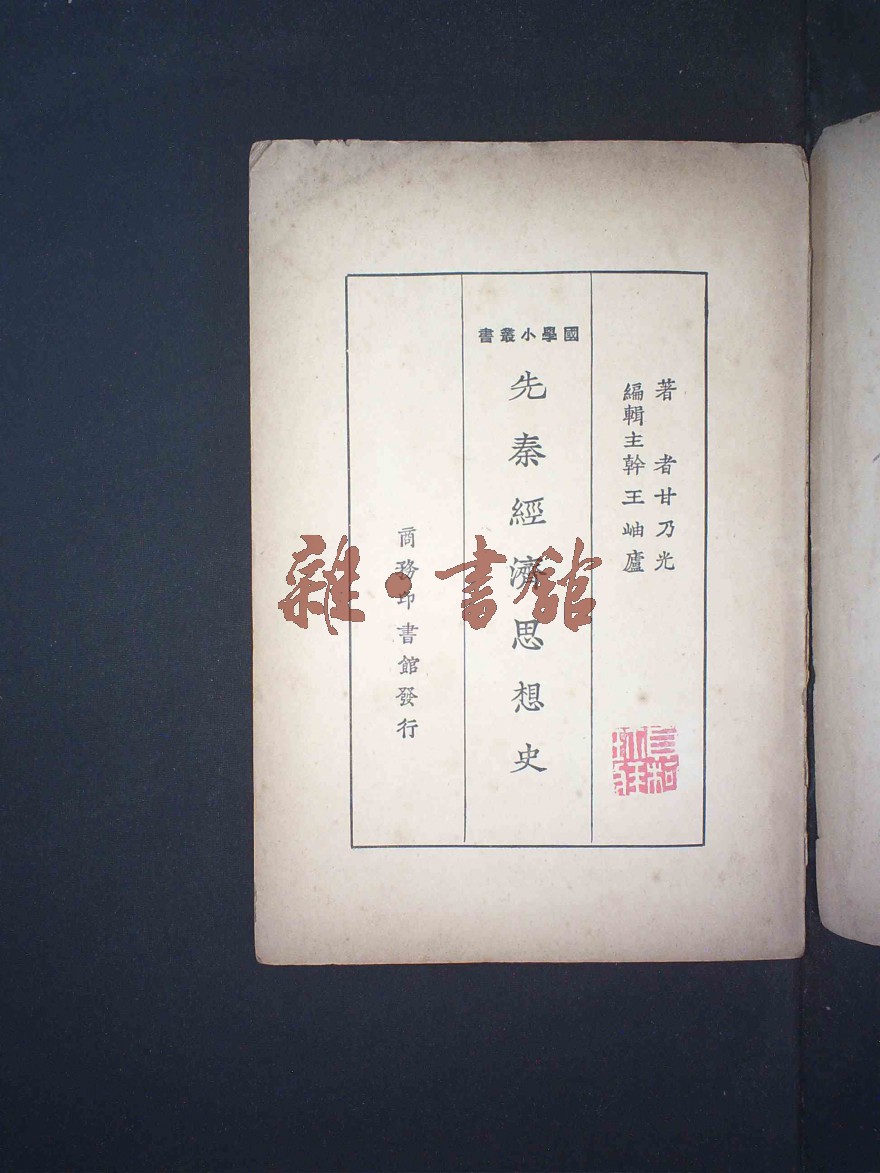 著者甘乃光
編輯主幹王岫廬
國學小叢書
先秦經濟思想史
商務印書館發行
雜·書館